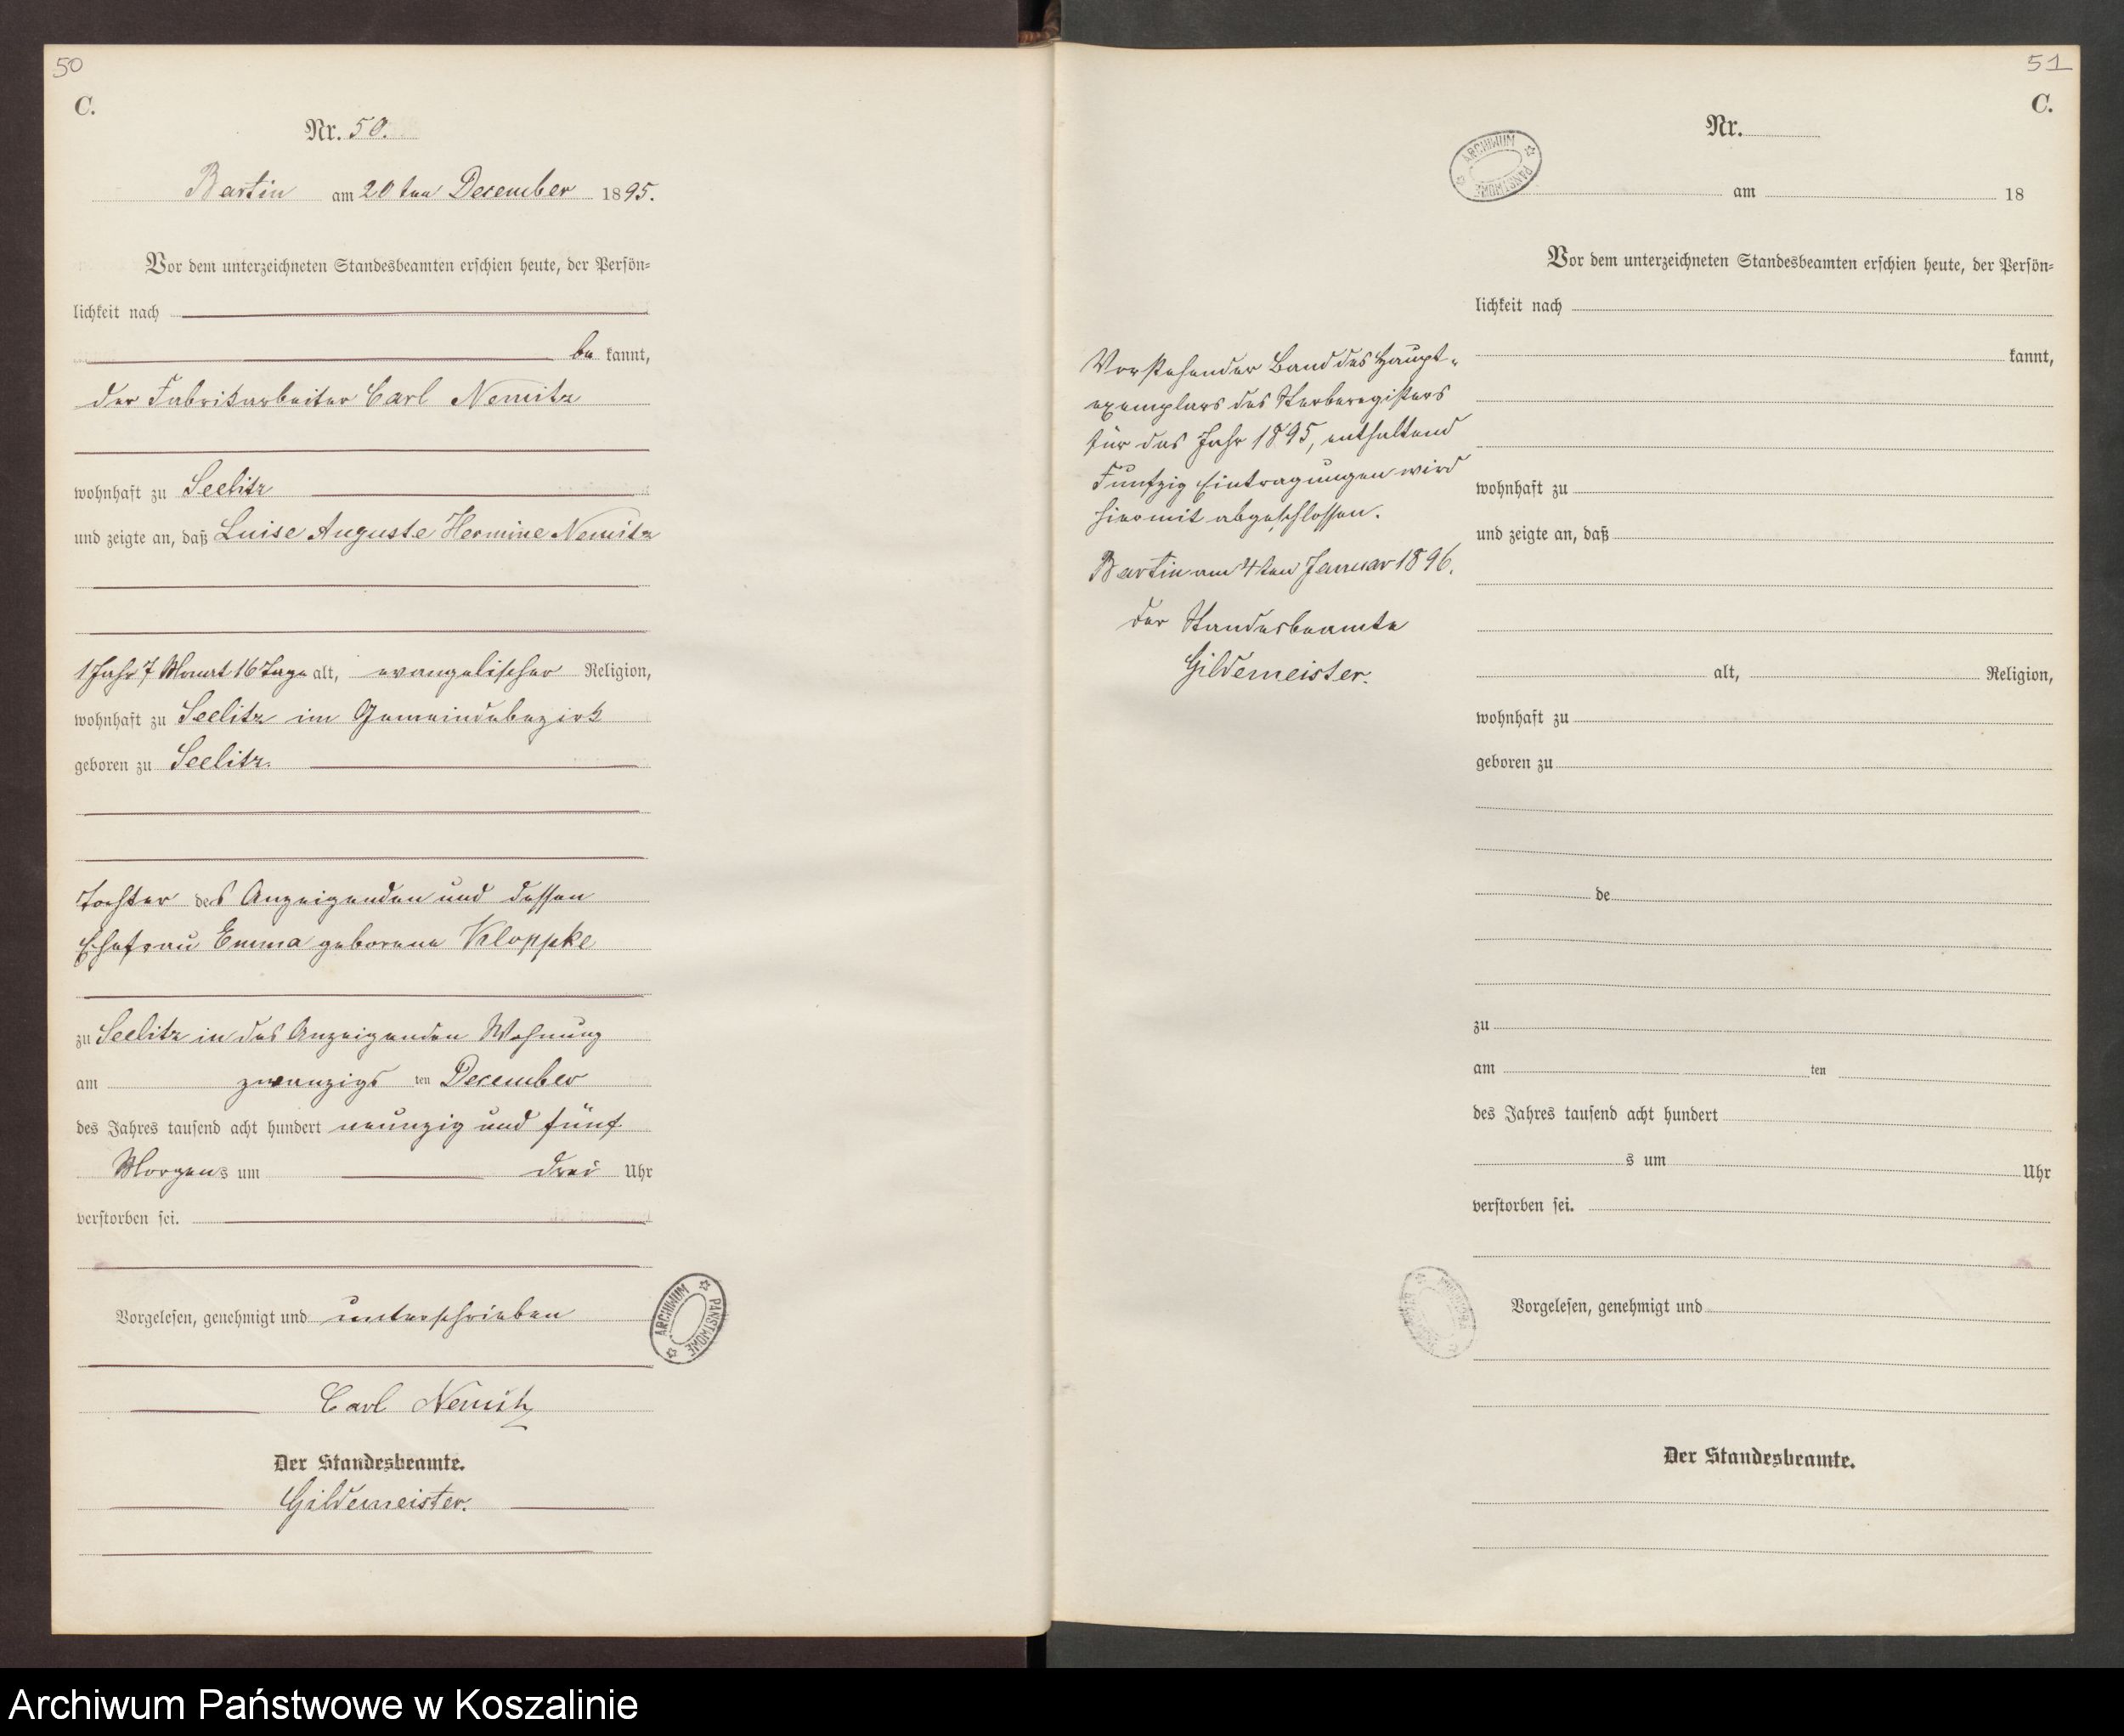 50
C.
Nr. 50.
Bartin am 20ten December 1895.
Vor dem unterzeichneten Standesbeamten erschien heute, der Persön-
lichkeit nach
be kannt,
der Fabrikarbeiter Carl Nemitz
wohnhaft zu Seelitz
und zeigte an, daß Luise Auguste Hermine Nemitz
1 Jahr 7 Monat 16 Tage alt, evangelischer Religion,
wohnhaft zu Seelitz im Gemeindebezirk
geboren zu Seelitz.
Tochter des Anzeigenden und dessen
Ehefrau Emma geborene Kloppke
zu Seelitz in des Anzeigenden Wohnung
am zwanzigs ten December
des Jahres tausend acht hundert neunzig und fünf
Morgens um drei Uhr
verstorben sei.
Vorgelesen, genehmigt und unterschrieben
Carl Nemitz
Der Standesbeamte.
Gildemeister.
ARCHIWUM PAŃSTWOWE
51
C.
Nr.
ARCHIWUM PAŃSTWOWE
am 18
Vor dem unterzeichneten Standesbeamten erschien heute, der Persön-
lichkeit nach
kannt,
wohnhaft zu
und zeigte an, daß
alt, Religion,
wohnhaft zu
geboren zu
de
zu
am ten
des Jahres tausend acht hundert
s um Uhr
verstorben sei.
Vorgelesen, genehmigt und
Der Standesbeamte.
Vorstehender Band des Haupt-
exemplars des Sterberegisters
für das Jahr 1895, enthaltend
Funfzig Eintragungen wird
hiermit abgeschlossen.
Bartin am 4ten Januar 1896.
Der Standesbeamte
Gildemeister.
Archiwum Państwowe w Koszalinie